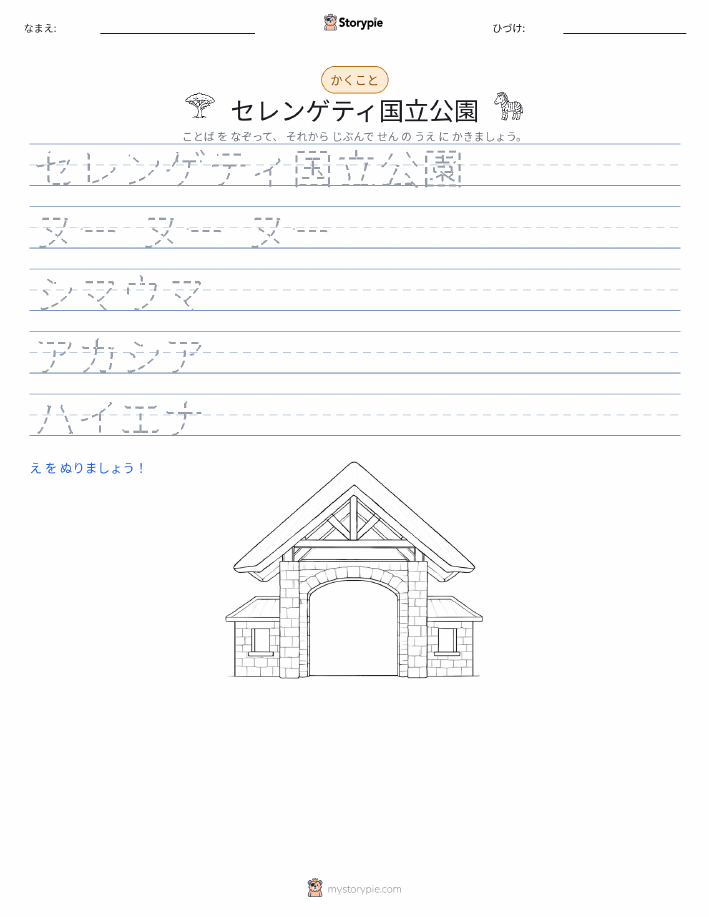 なまえ:
Storypie
ひづけ:
かくこと
セレンゲティ国立公園
ことば を なぞって、 それから じぶんで せん の うえ に かきましょう。
セレンゲティ国立公園
ヌー ヌー ヌー
シマウマ
アカシア
ハイエナ
え を ぬりましょう！
mystorypie.com